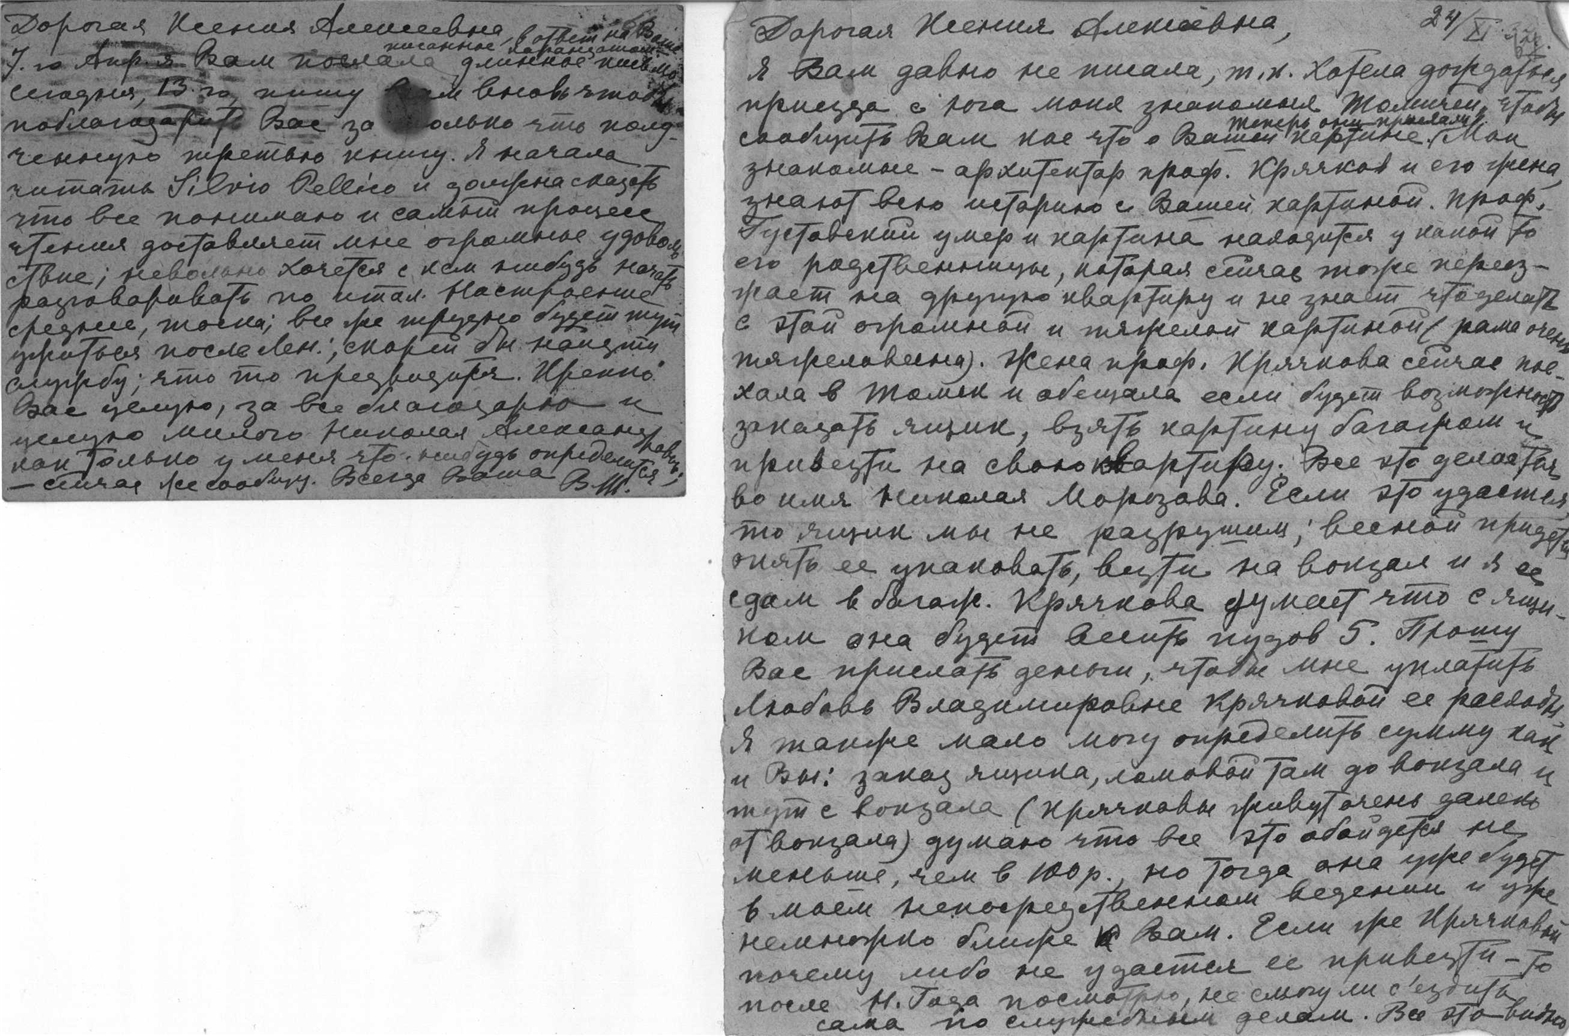 Дорогая Ксения Алексеевна, в ответ на Ваше
писанное карандашом
7.го Апр. я Вам послала длинное письмо
сегодня, 13.го, пишу Вам вновь чтобы
поблагодарить Вас за только что полу-
ченную третью книгу. Я начала
читать Silvio Pellico и должна сказать
что все понимаю и самый процесс
чтения доставляет мне огромное удоволь
ствие; невольно хочется с кем нибудь начать
разговаривать по итал. Настроение
среднее, тоска; все же трудно будет тут
ужиться после Лен.; скорей бы найти
службу; что то предвидится. Крепко
Вас целую, за все благодарю и
целую милого Николая Александровича;
как только у меня что-нибудь определится
– сейчас же сообщу. Всегда Ваша В.Ш.
24/XI
Дорогая Ксения Алексеевна,
я Вам давно не писала, т.к. хотела дождаться
приезда с юга моих знакомых Томичей, чтобы
сообщить Вам кое что о Вашей картине. Мои
теперь они приехали
знакомые – архитектор проф. Крячков и его жена,
знают всю историю с Вашей картиной. Проф.
Густовский умер и картина находится у какой то
его родственницы, которая сейчас тоже переез-
жает на другую квартиру и не знает что делать
с этой огромной и тяжелой картиной (рама очень
тяжеловесна). Жена проф. Крячкова сейчас пое-
хала в Томск и обещала если будет возможность
заказать ящик, взять картину багажом и
привезти на свою квартиру. Все это делается
во имя Николая Морозова. Если это удастся,
то ящик мы не разрушим; весной придется
опять ее упаковать, везти на вокзал и я ее
сдам в багаж. Крячкова думает что с ящи-
ком она будет весить пудов 5. Прошу
Вас прислать деньги, чтобы мне уплатить
Любовь Владимировне Крячковой ее расходы.
Я также мало могу определить сумму как
и Вы: заказ ящика, ломовой там до вокзала и
тут с вокзала (Крячковы живут очень далеко
от вокзала) думаю что все это обойдется не
меньше, чем в 100 р., но тогда она уже будет
в моем непосредственном ведении и уже
немножко ближе к Вам. Если же Крячковой
почему либо не удастся ее привезти – то
после Н. Года посмотрю, не смогу ли съездить
сама по служебным делам. Все это видно